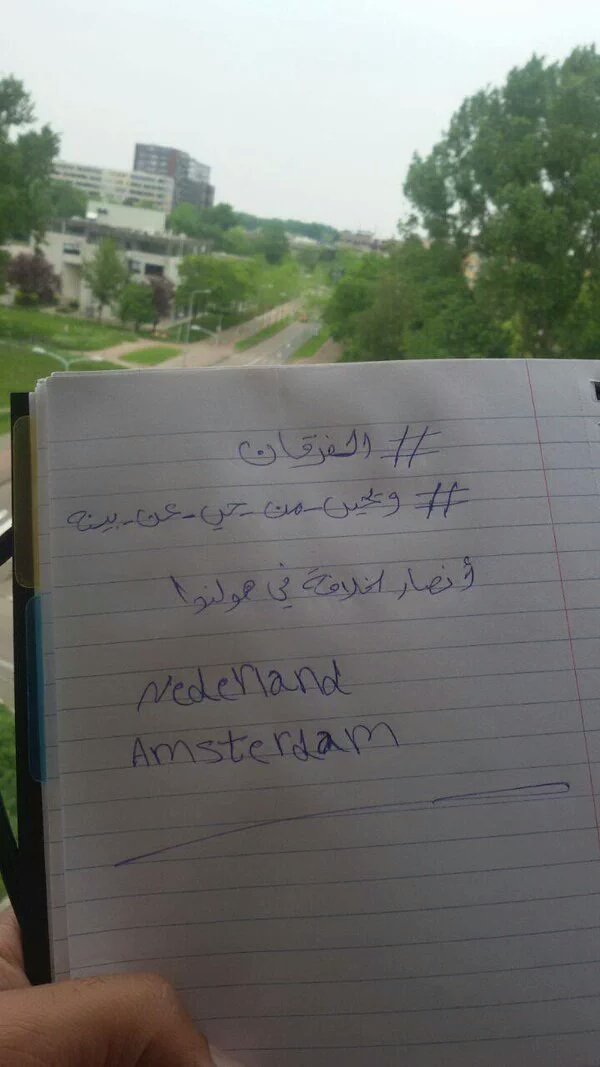 # الفرقان
# ويحيى_من_حي_عن_بينه
أنصار الخلافة في هولندا
Nederland
Amsterdam